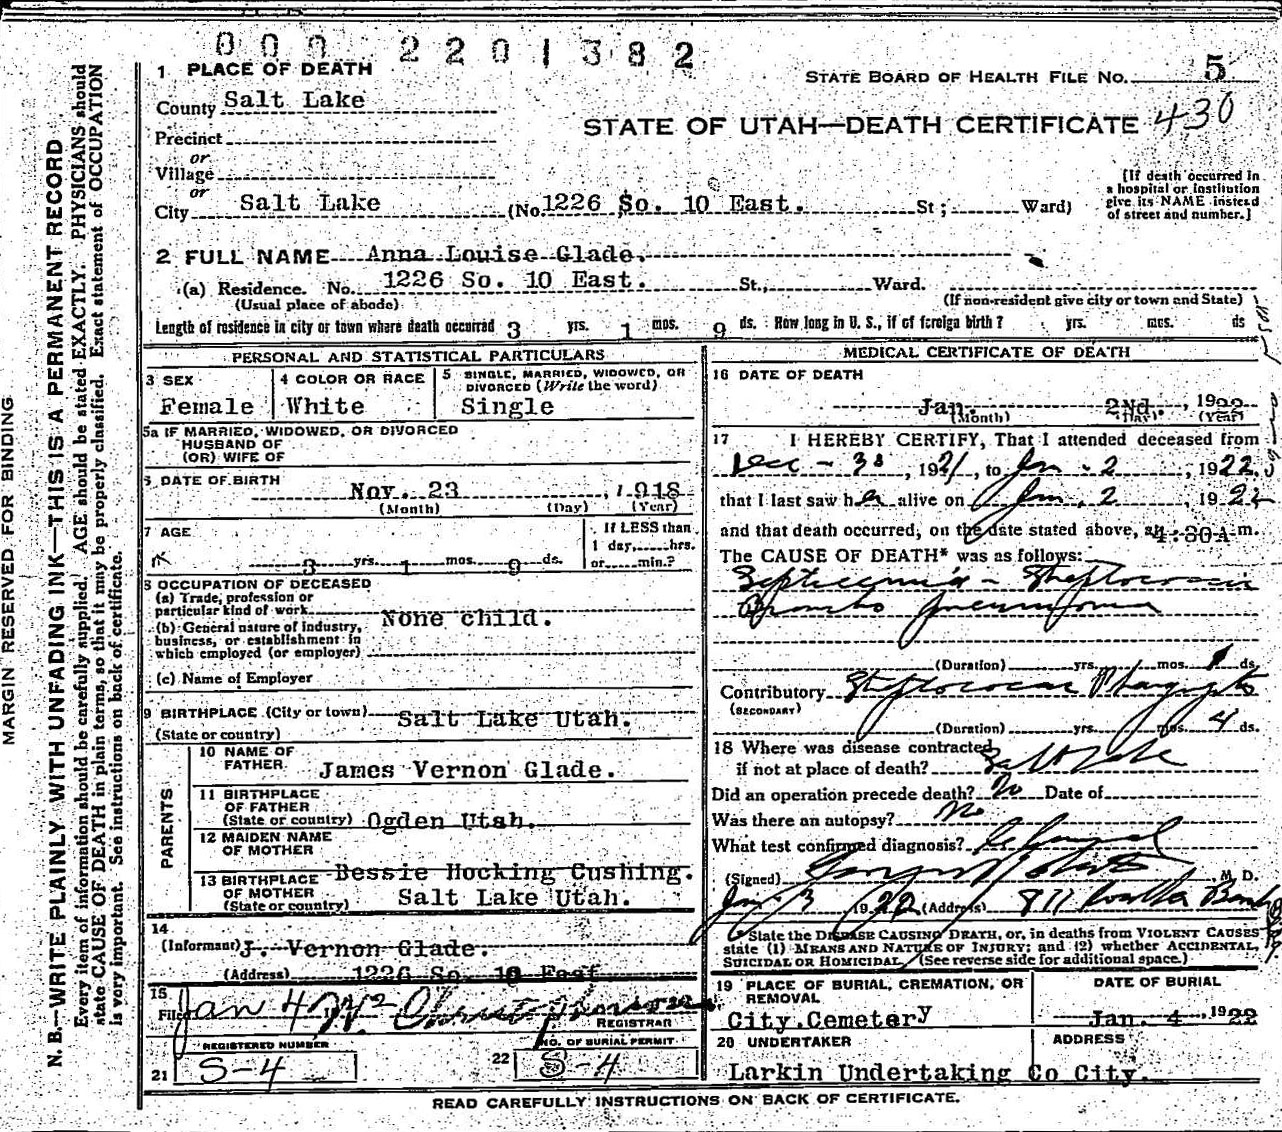 0 0 0 2 2 0 1 3 8 2
1 PLACE OF DEATH
STATE BOARD OF HEALTH FILE NO. 5
County Salt Lake
STATE OF UTAH—DEATH CERTIFICATE 430
Precinct
or
Village
or
City Salt Lake (No. 1226 So. 10 East. St; Ward)
[If death occurred in
a hospital or institution
give its NAME instead
of street and number.]
2 FULL NAME Anna Louise Glade.
(a) Residence. No. 1226 So. 10 East. St., Ward.
(Usual place of abode) (If non-resident give city or town and State)
Length of residence in city or town where death occurred 3 yrs. 1 mos. 9 ds. How long in U. S., if of foreign birth? yrs. mos. ds
PERSONAL AND STATISTICAL PARTICULARS
3 SEX
Female
4 COLOR OR RACE
White
5 SINGLE, MARRIED, WIDOWED, OR
DIVORCED (Write the word)
Single
5a IF MARRIED, WIDOWED, OR DIVORCED
HUSBAND OF
(OR) WIFE OF
6 DATE OF BIRTH
Nov. 23, 1918
(Month) (Day) (Year)
7 AGE
3 yrs. 1 mos. 9 ds.
If LESS than
1 day, hrs.
or min.?
8 OCCUPATION OF DECEASED
(a) Trade, profession or
particular kind of work
None child.
(b) General nature of industry,
business, or establishment in
which employed (or employer)
(c) Name of Employer
9 BIRTHPLACE (City or town) Salt Lake Utah.
(State or country)
PARENTS
10 NAME OF
FATHER James Vernon Glade.
11 BIRTHPLACE
OF FATHER
(State or country) Ogden Utah.
12 MAIDEN NAME
OF MOTHER
Bessie Hocking Cushing.
13 BIRTHPLACE
OF MOTHER
(State or country) Salt Lake Utah.
14
(Informant) J. Vernon Glade.
(Address) 1226 So. 10 East
15
Filed Jan 4
REGISTRAR
REGISTERED NUMBER
21 S-4
NO. OF BURIAL PERMIT
22 S-4
MEDICAL CERTIFICATE OF DEATH
16 DATE OF DEATH
Jan. 2Nd., 1922
(Month) (Day) (Year)
17 I HEREBY CERTIFY, That I attended deceased from
Dec - 30, 1921, to Jan - 2, 1922,
that I last saw her alive on Jan, 2 1922
and that death occurred, on the date stated above, at 4:30A m.
The CAUSE OF DEATH* was as follows:
Septicemia - Streptococcic
Broncho pneumonia
(Duration) yrs. mos. ds.
Contributory Streptococcic Pharyngitis
(SECONDARY)
(Duration) yrs. mos. 4 ds.
18 Where was disease contracted
if not at place of death? Salt Lake
Did an operation precede death? No Date of
Was there an autopsy? No
What test confirmed diagnosis? Clinical
(Signed) M. D.
Jan 3 1922 (Address) 811 Bank
*State the DISEASE CAUSING DEATH, or, in deaths from VIOLENT CAUSES
state (1) MEANS AND NATURE OF INJURY; and (2) whether ACCIDENTAL,
SUICIDAL OR HOMICIDAL. (See reverse side for additional space.)
19 PLACE OF BURIAL, CREMATION, OR
REMOVAL
City Cemetery
DATE OF BURIAL
Jan. 4 1922
20 UNDERTAKER
ADDRESS
Larkin Undertaking Co City.
READ CAREFULLY INSTRUCTIONS ON BACK OF CERTIFICATE.
MARGIN RESERVED FOR BINDING
N. B.—WRITE PLAINLY WITH UNFADING INK—THIS IS A PERMANENT RECORD
Every item of information should be carefully supplied. AGE should be stated EXACTLY. PHYSICIANS should
state CAUSE OF DEATH in plain terms, so that it may be properly classified. Exact statement of OCCUPATION
is very important. See instructions on back of certificate.